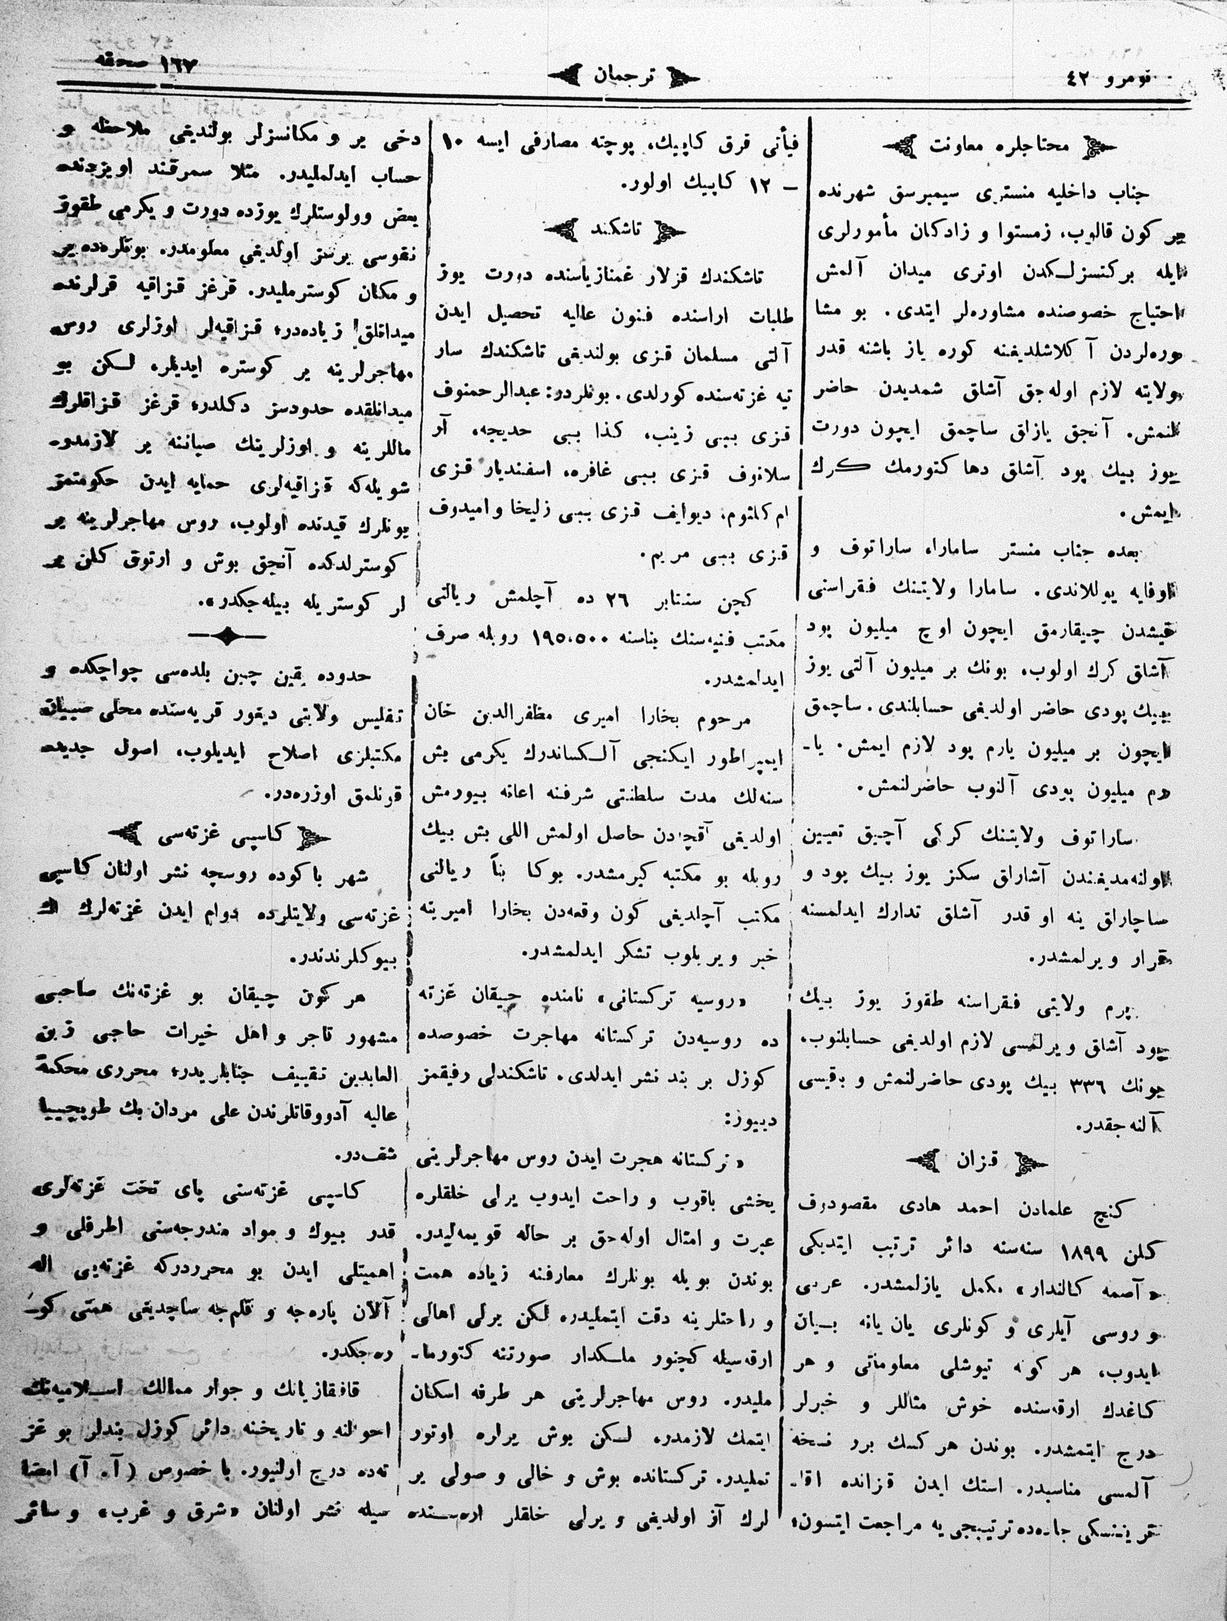 نومرو ٤٢
ترجمان
١٦٧ صحفه
محتاجلره معاونت
جناب داخليه منسترى سيمبرسق شهرنده
بر كون قالوب، زمستوا و زادكان مأمورلرى
ايله بركتسزلكدن اوترى ميدان آلمش
احتياج خصوصنده مشاوره‌لر ايتدى. بو مشا
وره‌لردن آكلاشلديغنه كوره ياز باشنه قدر
ولايته لازم اوله‌جق آشلق شمديدن حاضر
لنمش. آنجق يازلق ساچمق ايچون دورت
يوز بيك پود آشلق دها كتورمك كرك
ايمش.
بعده جناب منستر سامارا، ساراتوف و
اوفايه يوللاندى. سامارا ولايتنك فقراسنى
قيشدن چيقارمق ايچون اوچ ميليون پود
آشلق كرك اولوب، بونك بر ميليون آلتى يوز
بيك پودى حاضر اولديغى حسابلندى. ساچمق
ايچون بر ميليون يارم پود لازم ايمش. يا-
رم ميليون پودى آلنوب حاضرلنمش.
ساراتوف ولايتنك كركى آچيق تعيين
اولنه‌مديغندن آشاراق سكز يوز بيك پود و
ساچاراق ينه او قدر آشلق تدارك ايدلمسنه
قرار ويرلمشدر.
پرم ولايتى فقراسنه طقوز يوز بيك
پود آشلق ويرلمسى لازم اولديغى حسابلنوب،
بونك ٣٣٦ بيك پودى حاضرلنمش و باقيسى
آلنه‌جقدر.
قزان
كنج علمادن احمد هادى مقصودوف
كلن ١٨٩٩ سنه‌سنه دائر ترتيب ايتديكى
«آصمه كالندار» مكمل يازلمشدر. عربى
و روسى آيلرى و كونلرى يان يانه بيان
ايدوب، هر كونه تيوشلى معلوماتى و هر
كاغدك ارقه‌سنده خوش مثاللر و خبرلر
درج ايتمشدر. بوندن هر كسك برر نسخه
آلمسى مناسبدر. استك ايدن قزانده اقا-
ترينسكى جاده‌ده ترتيبجى يه مراجعت ايتسون؛
فيأتى قرق كاپيك، پوچته مصارفى ايسه ١٠
– ١٢ كاپيك اولور.
تاشكند
تاشكندك قزلار غمنازياسنده دورت يوز
طلبات اراسنده فنون عاليه تحصيل ايدن
آلتى مسلمان قزى بولنديغى تاشكندك سار
تيه غزته‌سنده كورلدى. بونلردر: عبدالرحمنوف
قزى بيبى زينب، كذا بيبى خديجه، آر
سلانوف قزى بيبى غافره، اسفنديار قزى
ام كلثوم، ديوايف قزى بيبى زليخا و اميدوف
قزى بيبى مريم.
كچن سنتابر ٢٦ ده آچلمش ريالنى
مكتب فنيه‌سنك بناسنه ١٩٥،٥٠٠ روبله صرف
ايدلمشدر.
مرحوم بخارا اميرى مظفرالدين خان
ايمپراطور ايكنجى آلكساندرك يكرمى بش
سنه‌لك مدت سلطنتى شرفنه اعانه بيورمش
اولديغى آقچه‌دن حاصل اولمش اللى بش بيك
روبله بو مكتبه كيرمشدر. بوكا بناً ريالنى
مكتب آچلديغى كون وقعه‌دن بخارا اميرينه
خبر ويريلوب تشكر ايدلمشدر.
«روسيه تركستانى» نامنده چيقان غزته
ده روسيه‌دن تركستانه مهاجرت خصوصده
كوزل بر بند نشر ايدلدى. تاشكندلى رفيقمز
دييوز:
«تركستانه هجرت ايدن روس مهاجرلرينى
يخشى باقوب و راحت ايدوب يرلى خلقلره
عبرت و امتال اوله‌جق بر حاله قويمه‌ليدر.
بوندن بويله بونلرك معارفنه زياده همت
و راحتلرينه دقت ايتمليدر، لكن يرلى اهالى
ارقه‌سيله كچنور ملكدار صورتنه كتورما-
مليدر. روس مهاجرلرينى هر طرفه اسكان
ايتمك لازمدر، لسكن بوش يرلره اوتور
تمليدر. تركستانده بوش و خالى و صولى ير
لرك آز اولديغى و يرلى خلقلر اره‌سنده
دخى ير و مكانسزلر بولنديغى ملاحظه و
حساب ايدلمليدر. مثلا سمرقند اويزدنده
بعض وولوستلرك يوزده دورت و يكرمى طقوز
نفوسى يرسز اولديغى معلومدر. بونلرده‌ده ير
و مكان كوسترمليدر. قرغز قزاقيه قرلرنده
ميدانلق زياده‌در؛ قزاقيه‌لر اوزلرى روس
مهاجرلرينه ير كوستره ايديلر، لسكن بو
ميدانلقده حدودسز دكلدر؛ قرغز قزاقلرك
ماللرينه و اوزلرينك صياننه ير لازمدر.
شويله‌كه قزاقيه‌لرى حمايه ايدن حكومتمز
بونلرك قيدنده اولوب، روس مهاجرلرينه ير
كوسترلدكده آنجق بوش و ارتوق كلن ير
لر كوستريله بيله‌جكدر».
حدوده يقين چين بلده‌سى چواچكده و
تفليس ولايتى ديغور قريه‌سنده محلى صبيان
مكتبلرى اصلاح ايديلوب، اصول جديده
قرنلمق اوزره‌در.
كاسپى غزته‌سى
شهر باكوده روسچه نشر اولنان كاسپى
غزته‌سى ولايتلرده دوام ايدن غزته‌لرك اك
بيوكلرندندر.
هر كون چيقان بو غزته‌نك صاحبى
مشهور تاجر و اهل خيرات حاجى زين
العابدين تقييف جنابلريدر؛ محررى محكمهٔ
عاليه آدووقاتلرندن على مردان بك طوپچيبا
شف‌در.
كاسپى غزته‌سنى پاى تخت غزته‌لرى
قدر بيوك و مواد مندرجه‌سنى اطرفلى و
اهميتلى ايدن بو محرردركه غزته‌يى اله
آلان پاره‌جه و قلم‌جه ساچديغى همتى كو-
ره‌جكدر.
قافقازيانك و جوار ممالك اسلاميه‌نك
احوالنه و تاريخنه دائر كوزل بندلر بو غز
ته‌ده درج اولنيور. با خصوص (آ. آ) امضا
سيله نشر اولنان «شرق و غرب» و سائر